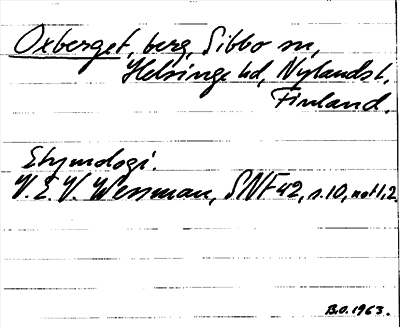 Oxberget, berg, Sibbo sn,
Helsinge hd, Nylands l,
Finland.
Etymologi.
V. E. V. Wessman, SNF 42, s. 10, not 1, 2
B.O. 1963.